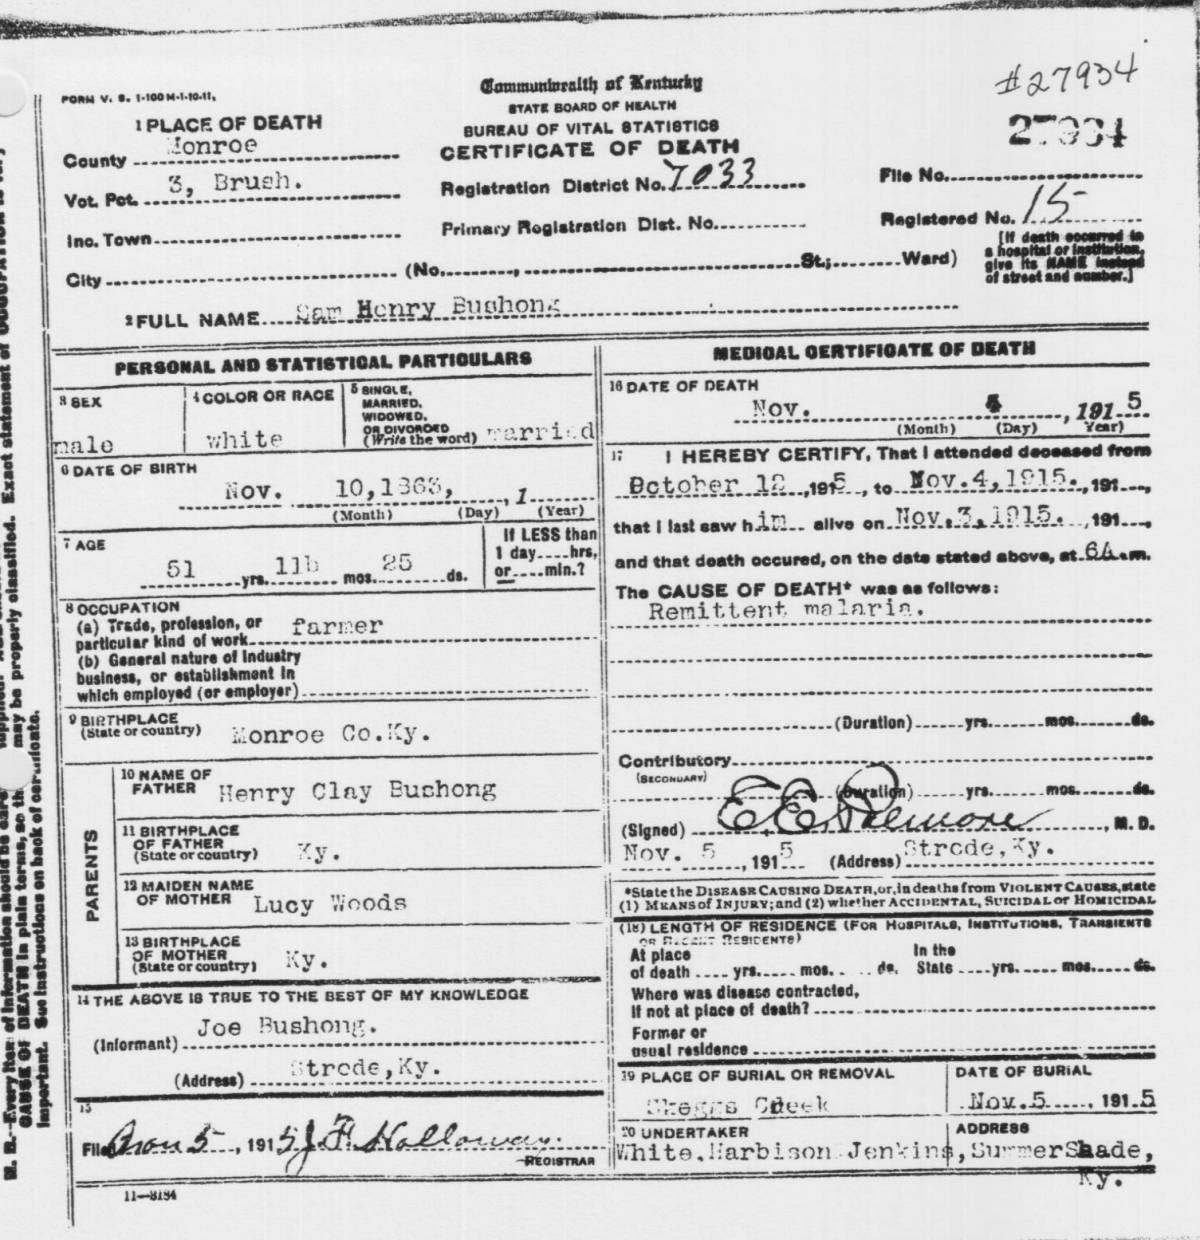 #27934
FORM V. S. 1-100M-1-10-11.
Commonwealth of Kentucky
STATE BOARD OF HEALTH
BUREAU OF VITAL STATISTICS
CERTIFICATE OF DEATH
27934
1 PLACE OF DEATH
County Monroe
Vot. Pct. 3, Brush.
Inc. Town
City (No. , St.; Ward)
Registration District No. 7033
Primary Registration Dist. No.
File No.
Registered No. 15
[If death occurred in
a hospital or institution,
give its NAME instead
of street and number.]
2 FULL NAME Sam Henry Bushong
PERSONAL AND STATISTICAL PARTICULARS
3 SEX
male
4 COLOR OR RACE
white
5 SINGLE,
MARRIED,
WIDOWED,
OR DIVORCED
(Write the word) married
6 DATE OF BIRTH
Nov. 10,1863, , 1
(Month) (Day) (Year)
7 AGE
51 yrs. 11b mos. 25 ds.
If LESS than
1 day hrs,
or min.?
8 OCCUPATION
(a) Trade, profession, or
particular kind of work farmer
(b) General nature of Industry
business, or establishment in
which employed (or employer)
9 BIRTHPLACE
(State or country) Monroe Co.Ky.
PARENTS
10 NAME OF
FATHER Henry Clay Bushong
11 BIRTHPLACE
OF FATHER
(State or country) Ky.
12 MAIDEN NAME
OF MOTHER Lucy Woods
13 BIRTHPLACE
OF MOTHER
(State or country) Ky.
14 THE ABOVE IS TRUE TO THE BEST OF MY KNOWLEDGE
(Informant) Joe Bushong.
(Address) Strode,Ky.
15
Filed Nov 5 , 1915 J F Holloway.
REGISTRAR
11—3184
MEDICAL CERTIFICATE OF DEATH
16 DATE OF DEATH
Nov. 4 , 1915
(Month) (Day) Year)
17 I HEREBY CERTIFY, That I attended deceased from
October 12 ,1915, to Nov.4,1915. ,191 ,
that I last saw him alive on Nov.3,1915. ,191 ,
and that death occured, on the date stated above, at 6A m.
The CAUSE OF DEATH* was as follows:
Remittent malaria.
(Duration) yrs. mos. ds.
Contributory
(SECONDARY)
(Duration) yrs. mos. ds.
(Signed) E E Palmore , M. D.
Nov. 5 , 1915 (Address) Strode,Ky.
*State the DISEASE CAUSING DEATH, or, in deaths from VIOLENT CAUSES, state
(1) MEANS of INJURY; and (2) whether ACCIDENTAL, SUICIDAL or HOMICIDAL
(18) LENGTH OF RESIDENCE (FOR HOSPITALS, INSTITUTIONS, TRANSIENTS
OR RECENT RESIDENTS)
At place In the
of death yrs. mos. ds. State yrs. mos. ds.
Where was disease contracted,
If not at place of death?
Former or
usual residence
19 PLACE OF BURIAL OR REMOVAL
Skeggs Creek
DATE OF BURIAL
Nov.5 , 1915
20 UNDERTAKER
White,Harbison Jenkins,
ADDRESS
SummerShade,
Ky.
N. B.—Every item of information should be
CAUSE OF DEATH in plain terms, so may be properly classified. Exact statement of OCCUPATION
important. See instructions on back of certificate.